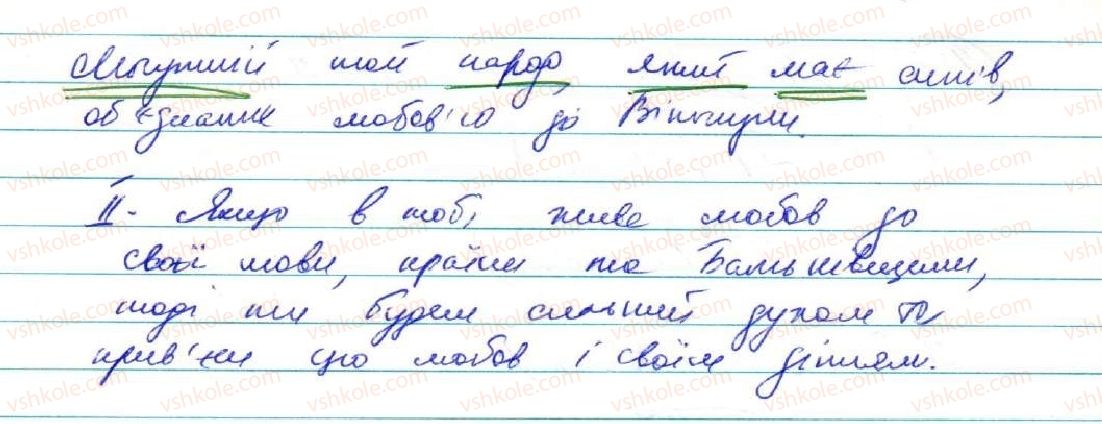 Могутній той народ, який має синів,
об'єднаних любов'ю до Вітчизни.
II - Якщо в тобі живе любов до
своєї мови, країни та Батьківщини,
тоді ти будеш сильний духом й
прив'єш цю любов і своїм дітям.